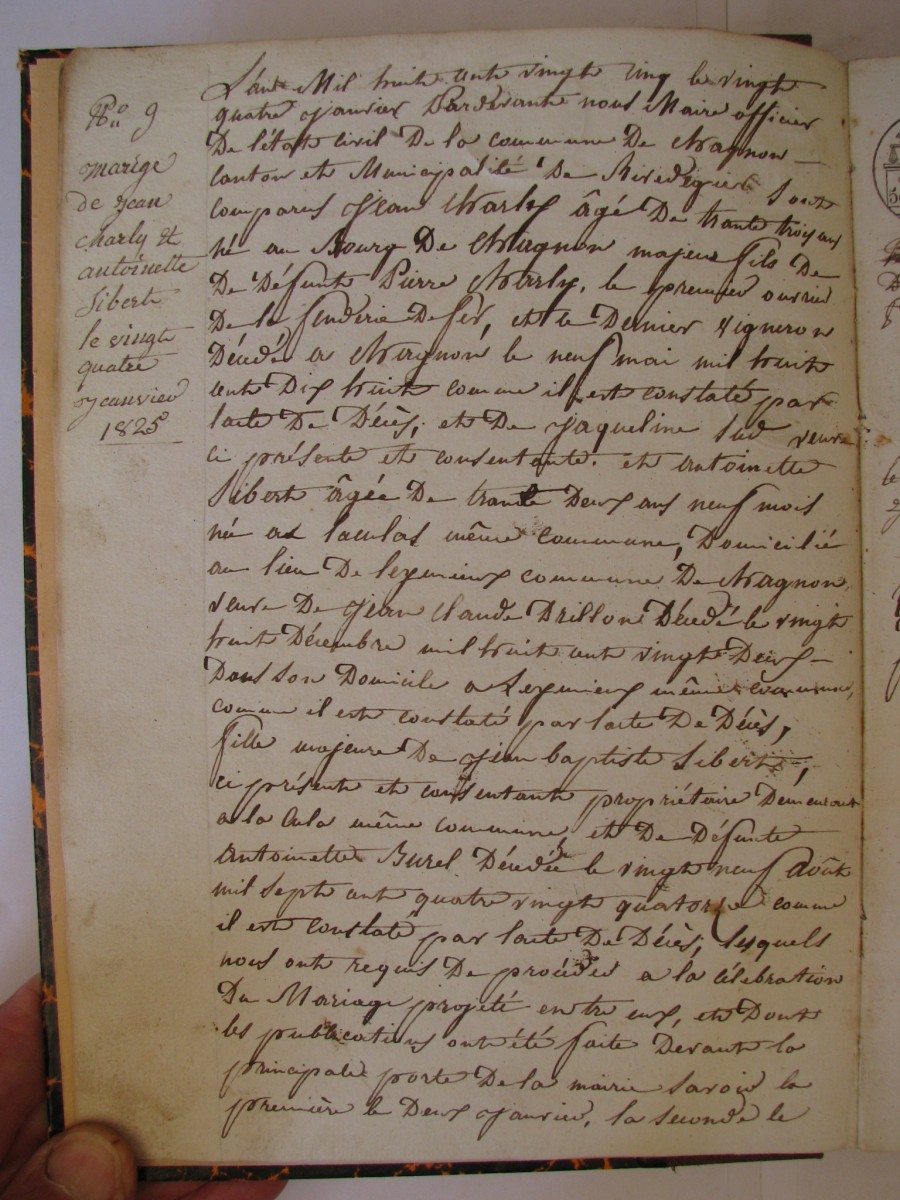 No 9
marége
de jean
charly et
antoinette
Sibert
le vingt
quatre
janvier
1825
L'ant Mil huit cent vingt cinq le vingt
quatre janvier Pardevant nous Maire officier
De l'état civil De la commune De Chagnon
canton et Municipalité De Rivedegier Sont
comparus jean Charly âgé De trante troy ans
né au Bourg De Chagnon majeur fils De
De Défunt Pierre Charly, le premier ouvrier
De la fenderie De fér, et le Dernier vigneron
Décédé a Chagnon le neuf mai mil huit
cent Dix huit comme il est constaté par
l'acte De Décès, et De jaqueline Sud veuve
ci présente et consentante. et antoinette
Sibert âgée De trante Deux ans neuf mois
né a même commune, Domicilié
au lieu De commune De Chagnon,
veuve De jean Claude Drillon Décédé le vingt
huit Décembre mil huit cent vingt Deux
Dans son Domicile a même commune,
comme il est constaté par l'acte De Décès,
fille majeure De jean baptiste Sibert,
ci présente et consentant propriétaire Demeurant
a la même commune, et De Défunte
antoinette Burel Décédée le vingt neuf août
mil sept cent quatre vingt quatorse comme
il est constaté par l'acte De Décès, lesquels
nous ont requis De procéder a la célébration
Du Mariage projété entre eux, et Dont
les publications ont été faite Devant la
principale porte De la mairie savoir la
première le Deux janvier, la seconde le